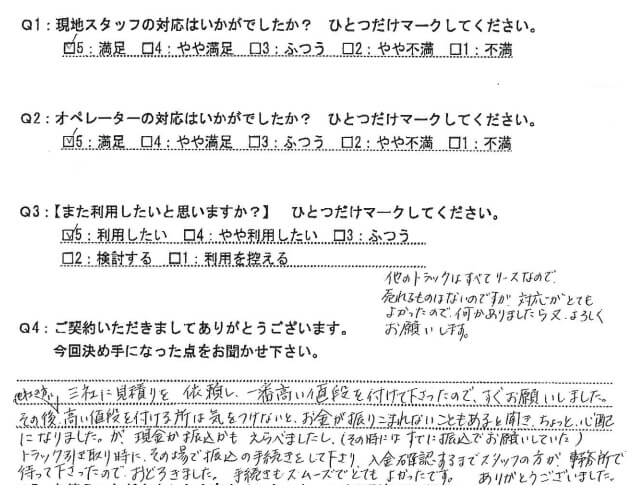 Q1：現地スタッフの対応はいかがでしたか？　ひとつだけマークしてください。
☑5：満足　□4：やや満足　□3：ふつう　□2：やや不満　□1：不満
Q2：オペレーターの対応はいかがでしたか？　ひとつだけマークしてください。
☑5：満足　□4：やや満足　□3：ふつう　□2：やや不満　□1：不満
Q3：【また利用したいと思いますか？】　ひとつだけマークしてください。
☑5：利用したい　□4：やや利用したい　□3：ふつう
□2：検討する　□1：利用を控える
他のトラックはすべてリースなので、
売れるものはないのですが 対応がとても
よかったので、何かありましたら又、よろしく
お願いします。
Q4：ご契約いただきましてありがとうございます。
今回決め手になった点をお聞かせ下さい。
三社に見積りを 依頼し、一番高い値段を付けて下さったので、すぐお願いしました。
その後、高い値段を付ける所は気をつけないと、お金が振りこまれないこともあると聞き、ちょっと、心配
になりました。が、現金か振込かも えらべましたし、(その時には すでに振込でお願いしていた)
トラック引き取り時に、その場で振込の手続きをして下さり、入金確認するまでスタッフの方が、事務所で
待って下さったので、おどろきました。手続きもスムーズでとてもよかったです。 ありがとうございました。